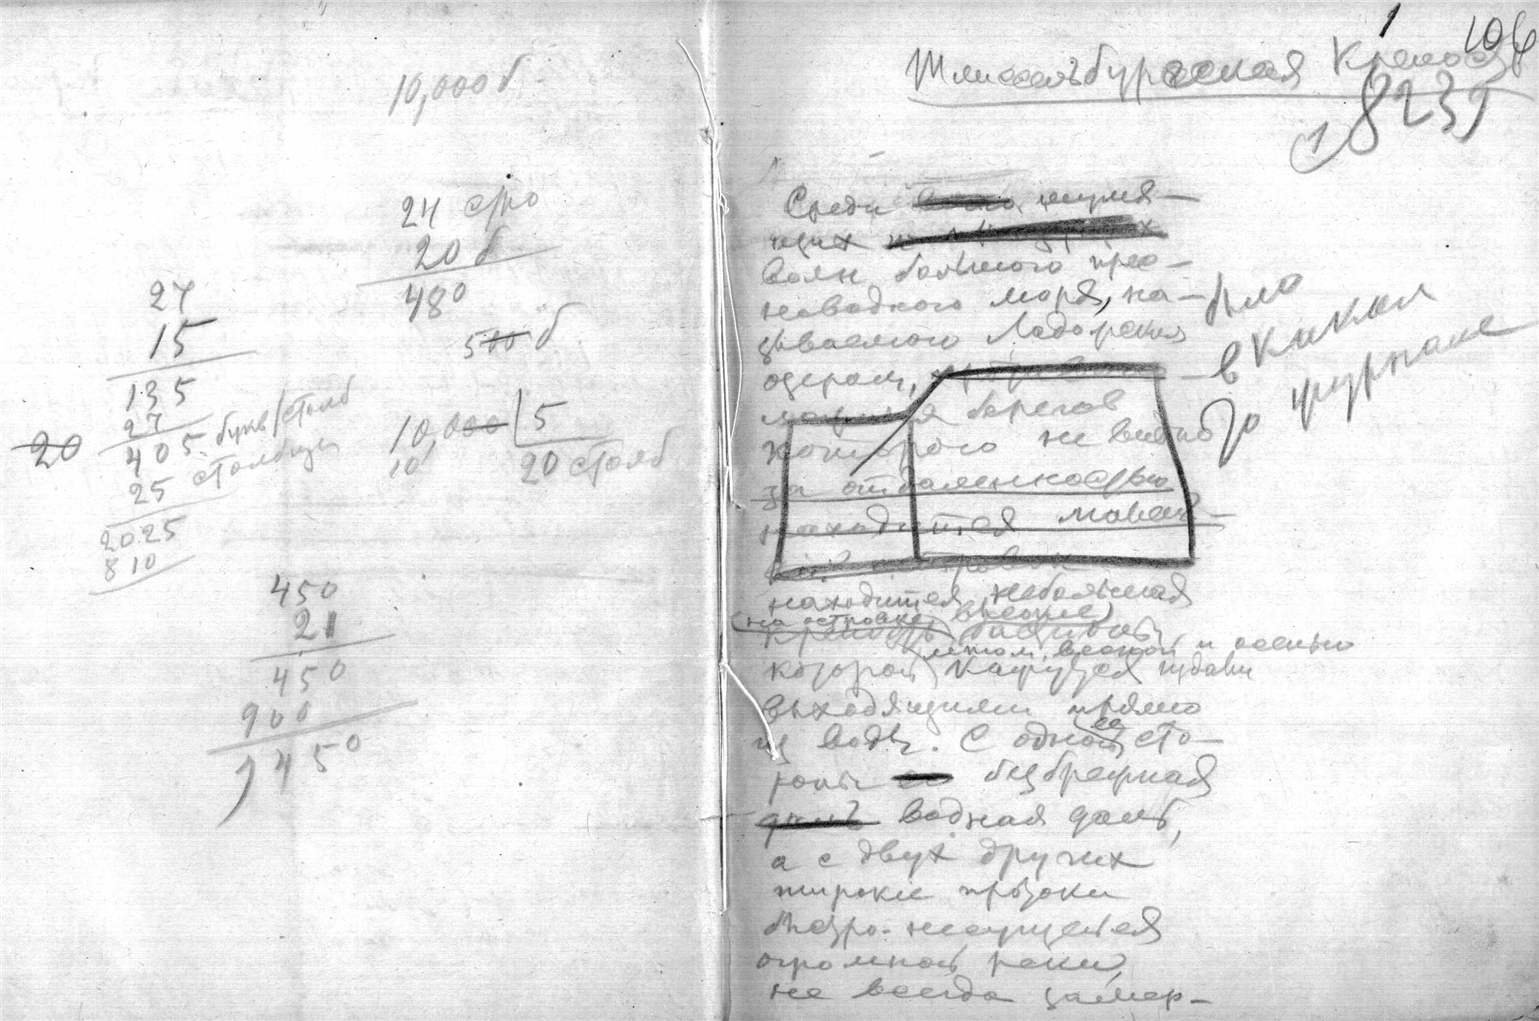 10,000 б
24 стро
20 б
480
500 б
10,000 | 5
10
20 столб
27
15
135
27
405 букв/столб
25 столбцы
2025
810
20
450
21
450
900
9450
1
106
Шлиссельбургская Крепость
8239
Среди шумя-
щих
волн большого прес-
новодного моря, на-
зываемого Ладожским
озером,
берегов
которого не видно
за отдаленностью
находится малень-
кий островок
находится небольшая
(на островке) высокие)
крепость башни
летом, весной и осенью
которой кажутся
выходящими прямо
из воды. С одной ее сто-
роны безбрежная
даль водная даль,
а с двух других
широкие протоки
быстро несущейся
огромной реки,
не всегда замер-
было
в каком
то журнале